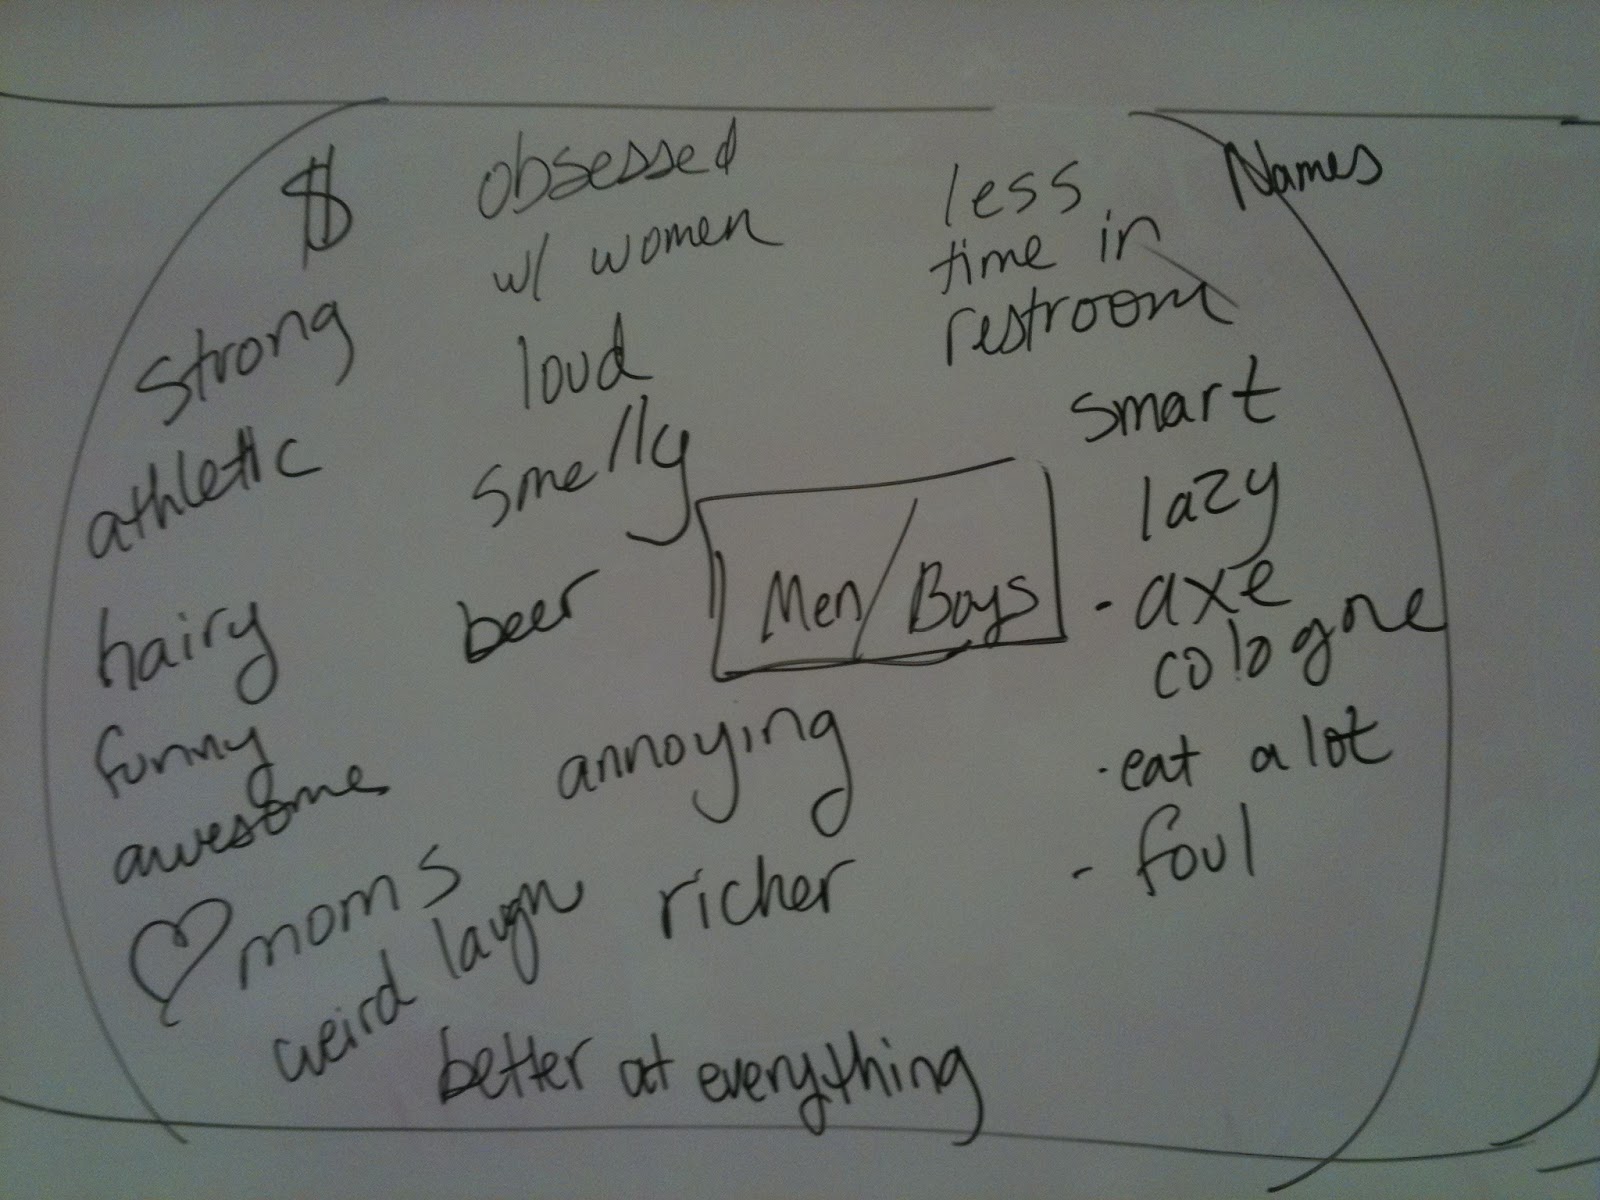 $
obsessed
w/ women
less
time in
restroom
Names
strong
athletic
hairy
funny
awesome
♡ moms
weird laugh
loud
smelly
beer
Men/Boys
annoying
richer
better at everything
smart
lazy
- axe
cologne
- eat a lot
- foul